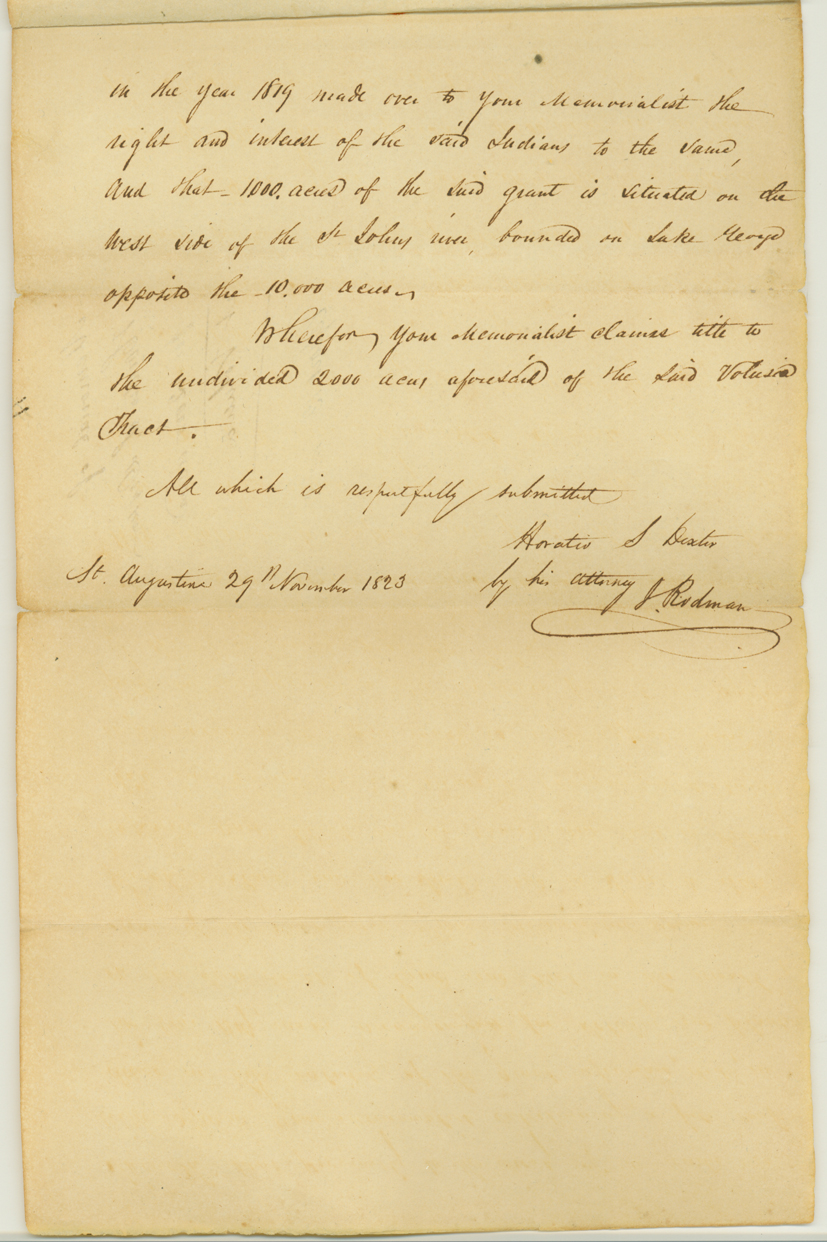 in the year 1819 made over to your Memorialist the
right and interest of the said Indians to the same,
And that - 1000. acres of the said grant is situated on the
West side of the St Johns river, bounded on Lake George
opposite the - 10.000 acres.
Wherefore, your Memorialist claims title to
the undivided 2000 acres aforesaid of the said Volusia
Tract.
All which is respectfully submitted
Horatio S Dexter
St. Augustine 29th November 1823
by his attorney J. Rodman